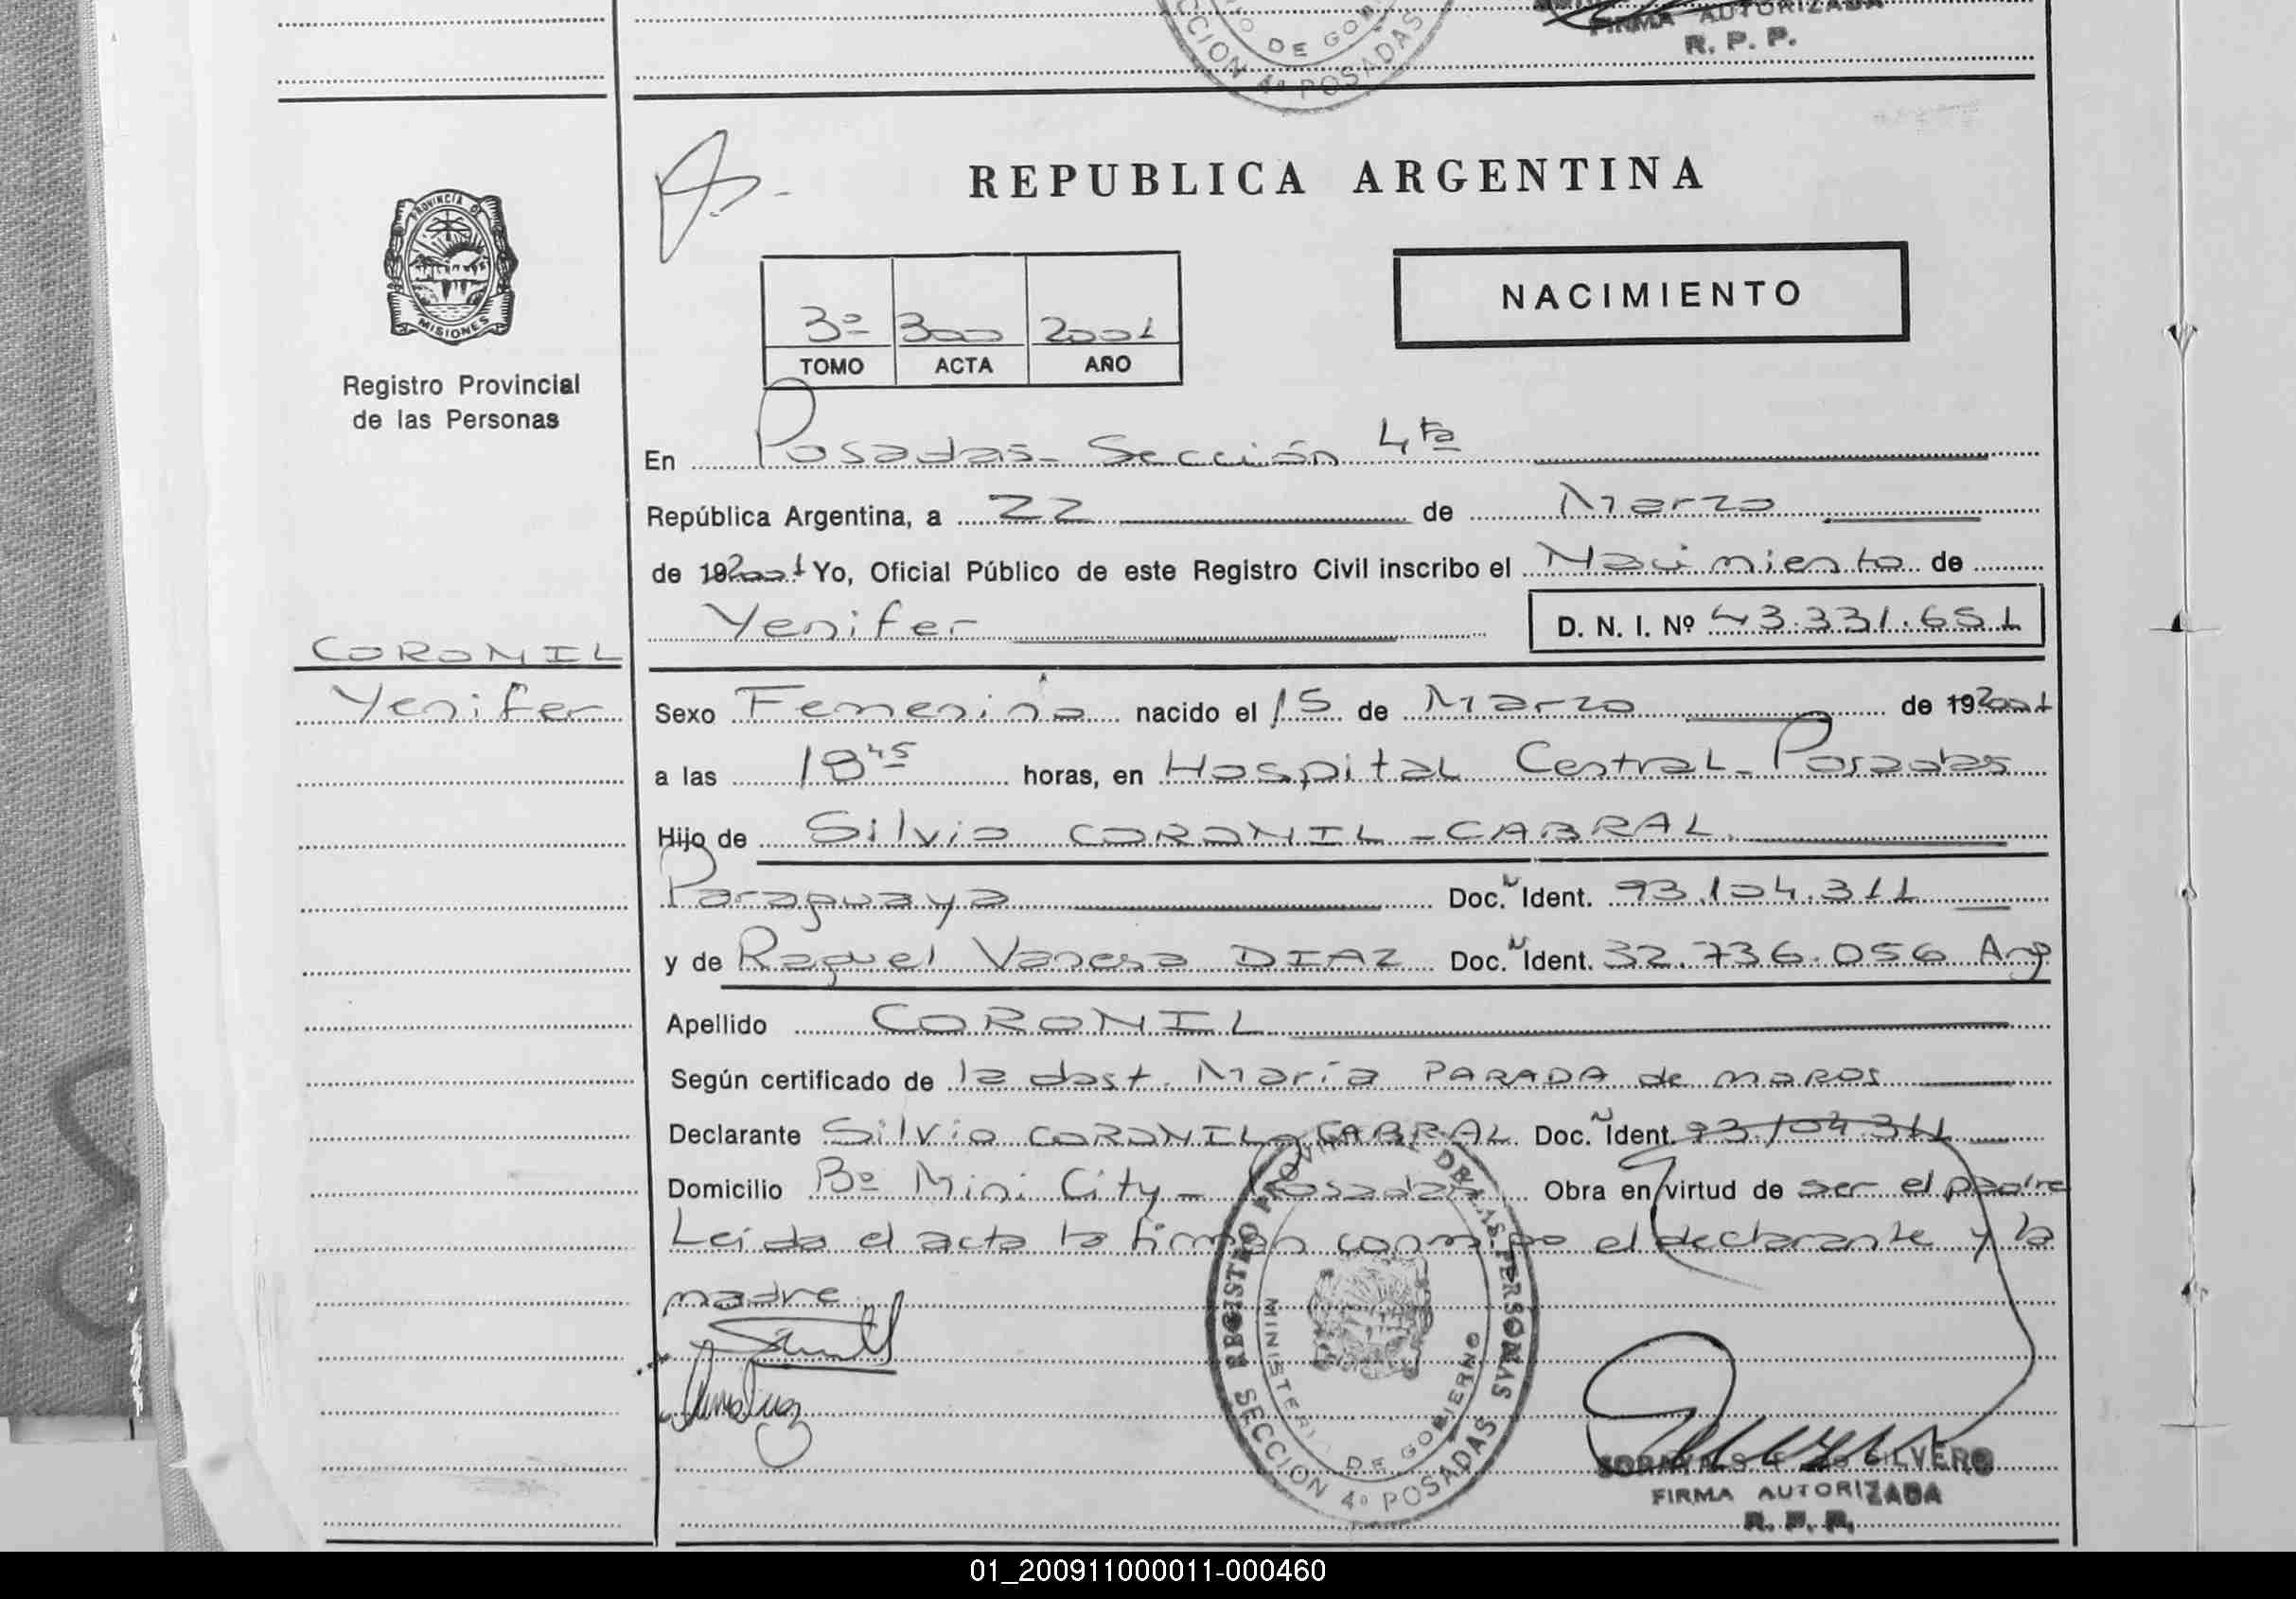 CCION 4ª POSADAS
DE GO
FIRMA AUTORIZADA
R. P. P.
REPUBLICA ARGENTINA
PROVINCIA DE
MISIONES
Registro Provincial
de las Personas
NACIMIENTO
3º 300 2001
TOMO ACTA AÑO
En Posadas - Sección 4ta
República Argentina, a 22 de Marzo
de 192001 Yo, Oficial Público de este Registro Civil inscribo el Nacimiento de
Yenifer D. N. I. Nº 43.331.651
CORONIL
Yenifer
Sexo Femenino nacido el 15 de Marzo de 192001
a las 18 45 horas, en Hospital Central - Posadas
Hijo de Silvio CORONIL - CABRAL
Paraguaya Doc. Ident. 93.104.311
y de Raquel Vanesa DIAZ Doc. Ident. 32.736.056 Arg
Apellido CORONIL
Según certificado de la obst. María PARADA de MAROS
Declarante Silvio CORONIL CABRAL Doc. Ident. 93.104.311
Domicilio Bº Mini City - Posadas Obra en virtud de ser el padre
Leída el acta la firman conmigo el declarante y la
madre
REGISTRO PROVINCIAL DE LAS PERSONAS
MINISTERIO DE GOBIERNO
SECCION 4ª POSADAS
SILVERO
FIRMA AUTORIZADA
R. P. P.
01_200911000011-000460